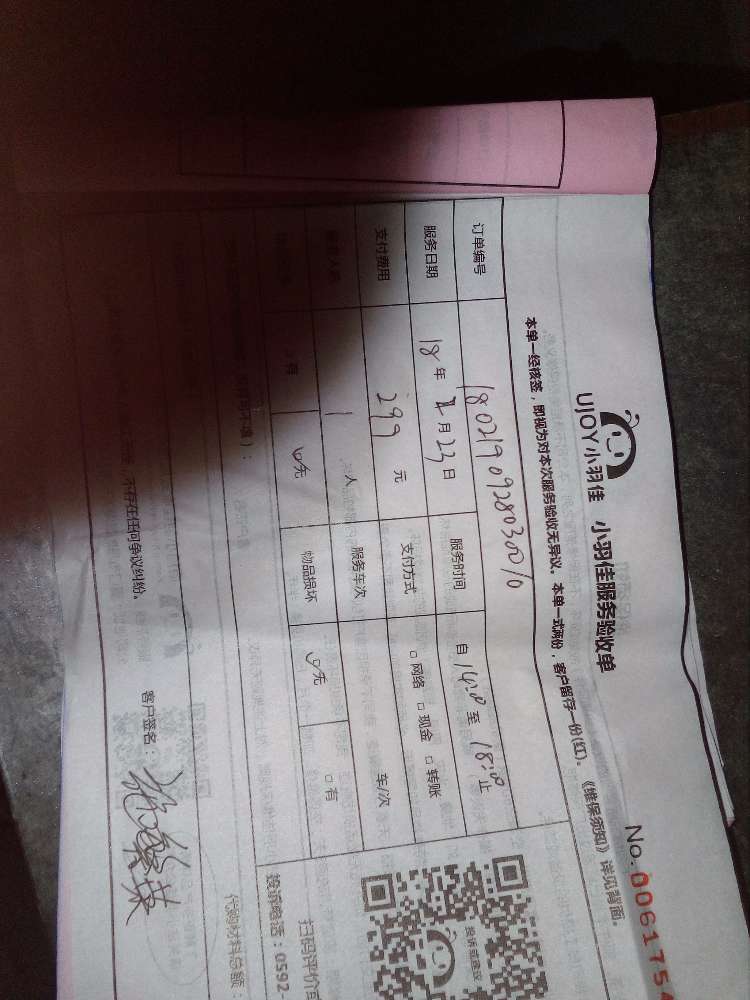 UJOY小羽佳 小羽佳服务验收单
No. 006175
本单一经核签，即视为对本次服务验收无异议。本单一式两份，客户留存一份(红)。《维保须知》详见背面。
订单编号 1802190928030010
服务日期 18年2月23日 服务时间 自14:00至18:00止
支付费用 299元 支付方式 □网络 □现金 □转账
1人 服务车次 车/次
□有 □无 物品损坏 □无 □有
投诉或建议
扫码评价
投诉电话：0592-
代购材料总额：
不存在任何争议纠纷。
客户签名：